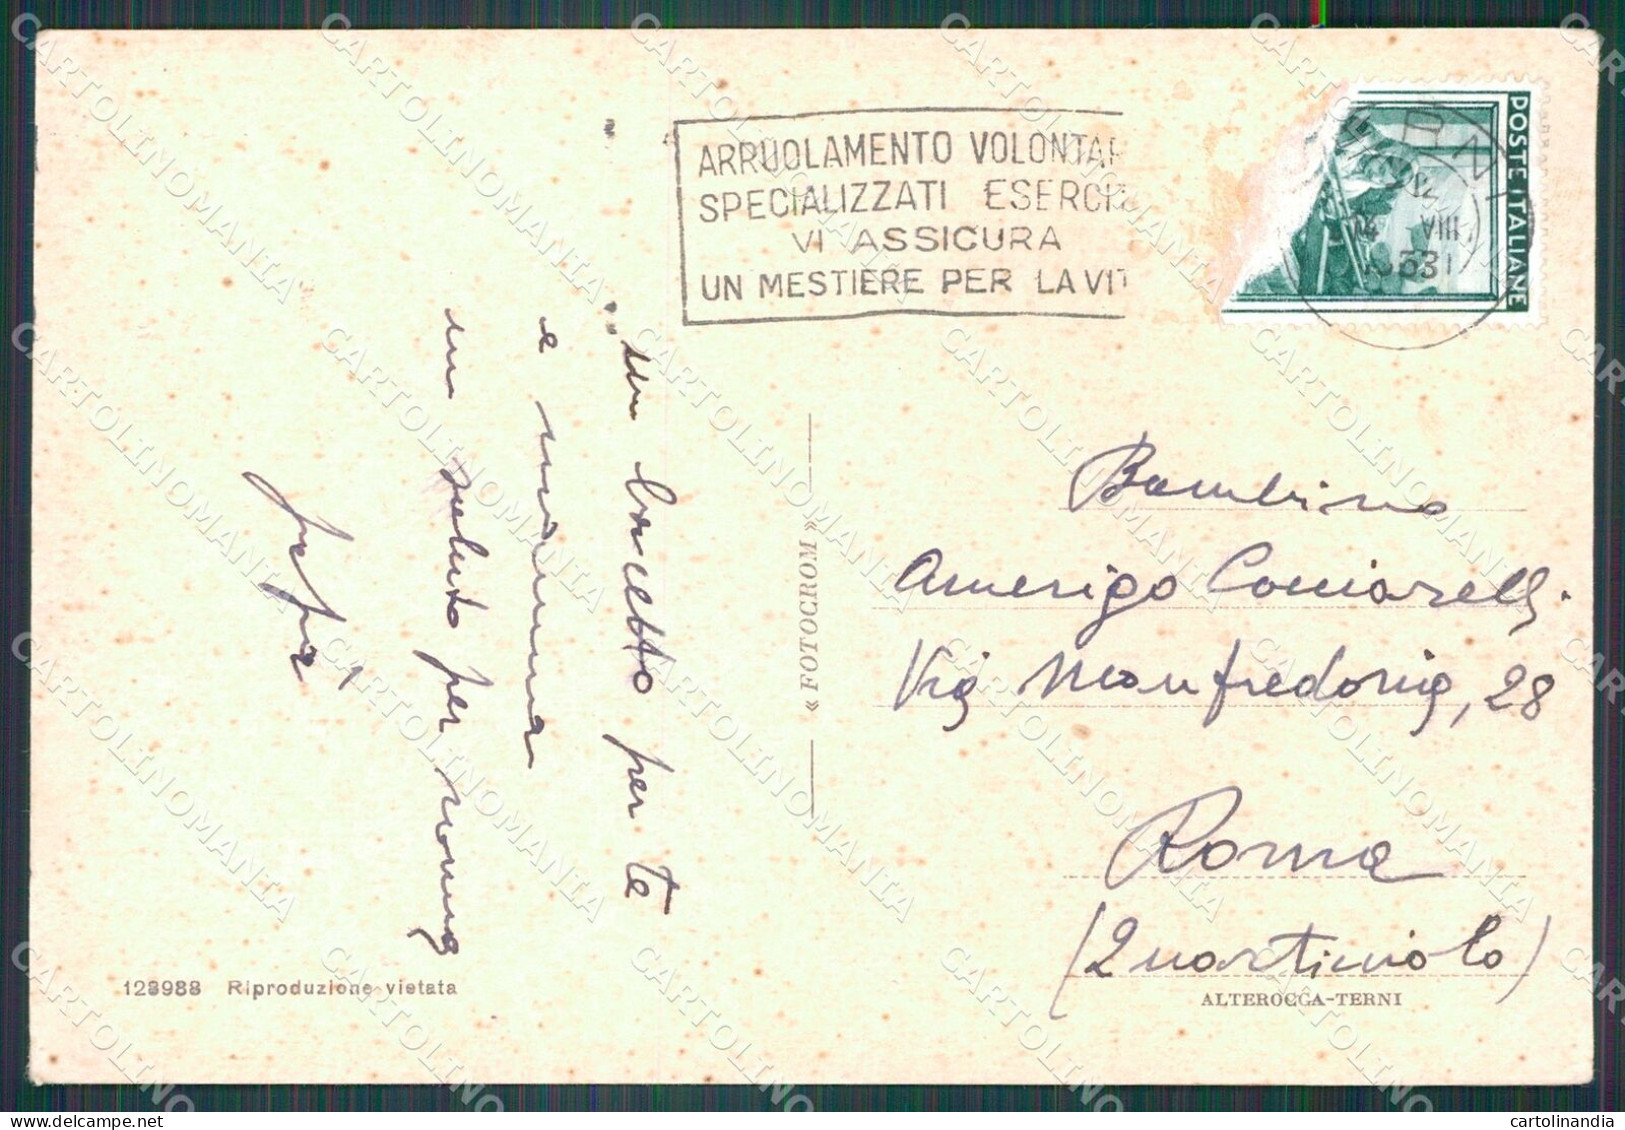 ARRUOLAMENTO VOLONTAR
SPECIALIZZATI ESERCIT
VI ASSICURA
UN MESTIERE PER LA VIT
POSTE ITALIANE
VIII
un bacetto per te
e mamma
un saluto per nonna
Bambino
Amerigo
Via Manfredonia, 28
Roma
(Quarticciolo)
« FOTOCROM »
128988 Riproduzione vietata
ALTEROCCA-TERNI
CARTOLINOMANIA
cartolinandia